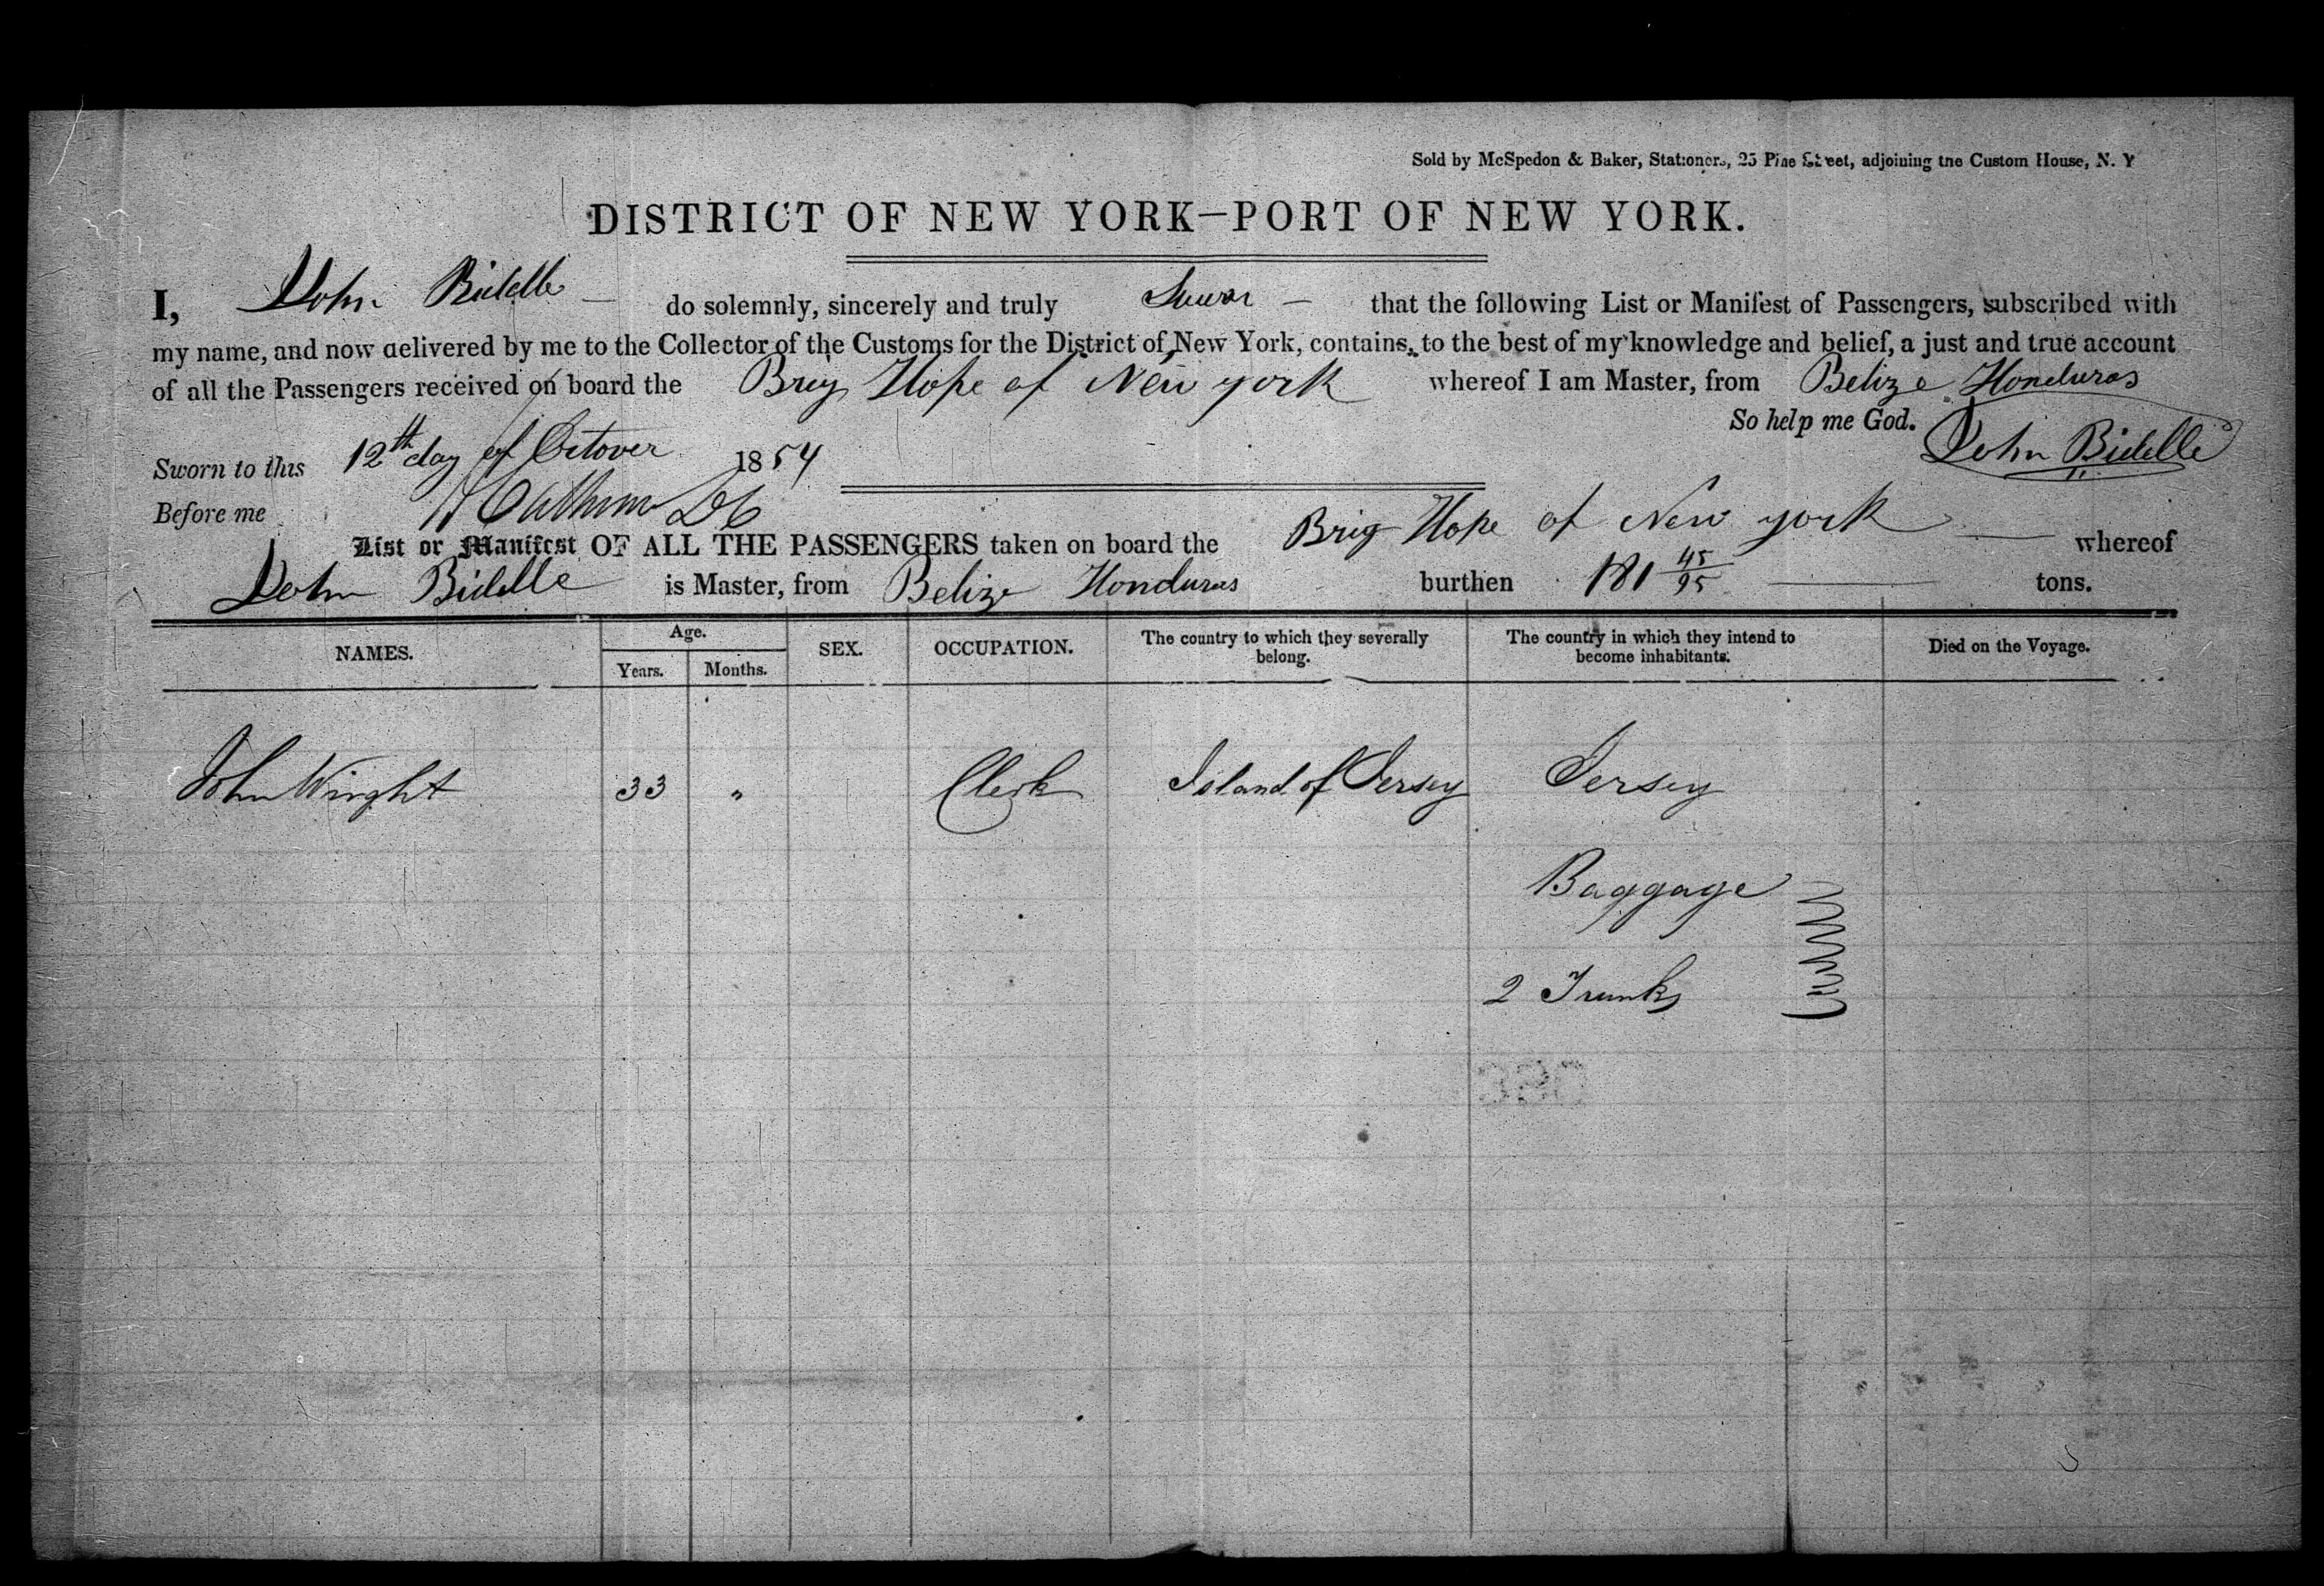 Sold by McSpedon & Baker, Stationers, 25 Pine Street, adjoining the Custom House, N. Y
DISTRICT OF NEW YORK—PORT OF NEW YORK.
I, John Bidelle — do solemnly, sincerely and truly Swear — that the following List or Manifest of Passengers, subscribed with
my name, and now delivered by me to the Collector of the Customs for the District of New York, contains, to the best of my knowledge and belief, a just and true account
of all the Passengers received on board the Brig Hope of New york whereof I am Master, from Belize Honduras
So help me God. John Bidelle
Sworn to this 12th day of Octover 1854
Before me
List or Manifest OF ALL THE PASSENGERS taken on board the Brig Hope of New york — whereof
John Bidelle is Master, from Belize Honduras burthen 181 45/95 — tons.
NAMES. Age. Years. Months. SEX. OCCUPATION. The country to which they severally belong. The country in which they intend to become inhabitants. Died on the Voyage.
John Wright 33 " Clerk Island of Jersey Jersey
Baggage
2 Trunks